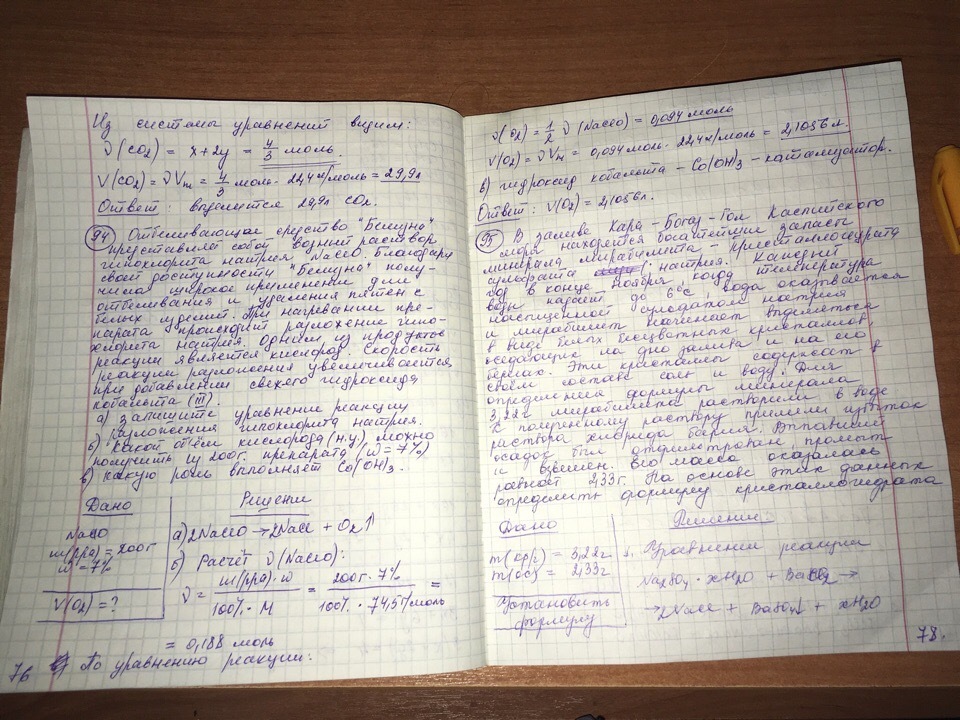 Из системы уравнений видим:
ν(CO2) = x+2y = 4/3 моль.
V(CO2) = νVm = 4/3 моль · 22,4 л/моль = 29,9л
Ответ: выделится 29,9л CO2.
94 Отбеливающее средство "Белизна"
представляет собой водный раствор
гипохлорита натрия NaClO. Благодаря
своей доступности "Белизна" полу-
чила широкое применение для
отбеливания и удаления пятен с
белых изделий. При нагревании пре-
парата происходит разложение гипо-
хлорита натрия. Одним из продуктов
реакции является кислород. Скорость
реакции разложения увеличивается
при добавлении свежего гидроксида
кобальта (III).
а) запишите уравнение реакции
разложения гипохлорита натрия.
б) какой объём кислорода (н.у.) можно
получить из 200г. препарата (w = 7%)
в) какую роль выполняет Co(OH)3.
Дано
NaClO
m(р-ра) = 200г
w = 7%
V(O2) = ?
Решение
а) 2NaClO → 2NaCl + O2↑
б) Расчёт ν(NaClO):
ν = m(р-ра) · w / 100% · M = 200г · 7% / 100% · 74,5г/моль =
= 0,188 моль
По уравнению реакции:
76
ν(O2) = 1/2 ν(NaClO) = 0,094 моль
V(O2) = νVm = 0,094 моль · 22,4 л/моль = 2,1056 л.
в) гидроксид кобальта – Co(OH)3 – катализатор.
Ответ: V(O2) = 2,1056л.
95 В заливе Кара-Богаз-Гол Каспийского
моря находятся богатейшие запасы
минерала мирабилита – кристаллогидрата
сульфата натрия. Каждый
год в конце ноября, когда температура
воды падает до 6°С вода оказывается
насыщенной сульфатом натрия
и мирабилит начинает выделяться
в виде белых бесцветных кристаллов,
оседающих на дно залива и на его
берегах. Эти кристаллы содержат в
своём составе соль и воду. Для
определения формулы минерала
3,22г мирабилита растворили в воде
К полученному раствору прилили избыток
раствора хлорида бария. Выпавший
осадок был отфильтрован, промыт
и взвешен. Его масса оказалась
равной 2,33г. На основе этих данных
определить формулу кристаллогидрата
Дано
m(кр/г) = 3,22г
m(ос) = 2,33г
Установить
формулу
Решение:
1. Уравнение реакции
Na2SO4 · xH2O + BaCl2 →
→ 2NaCl + BaSO4↓ + xH2O
78.